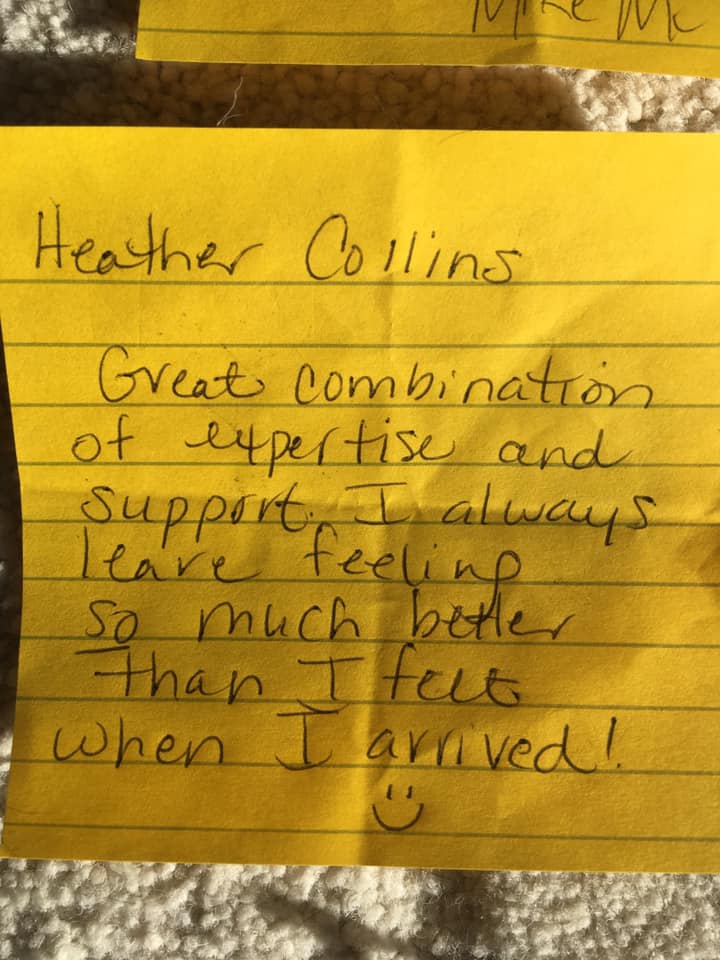 Mike Mc
Heather Collins
Great combination
of expertise and
support. I always
leave feeling
so much better
than I felt
when I arrived!